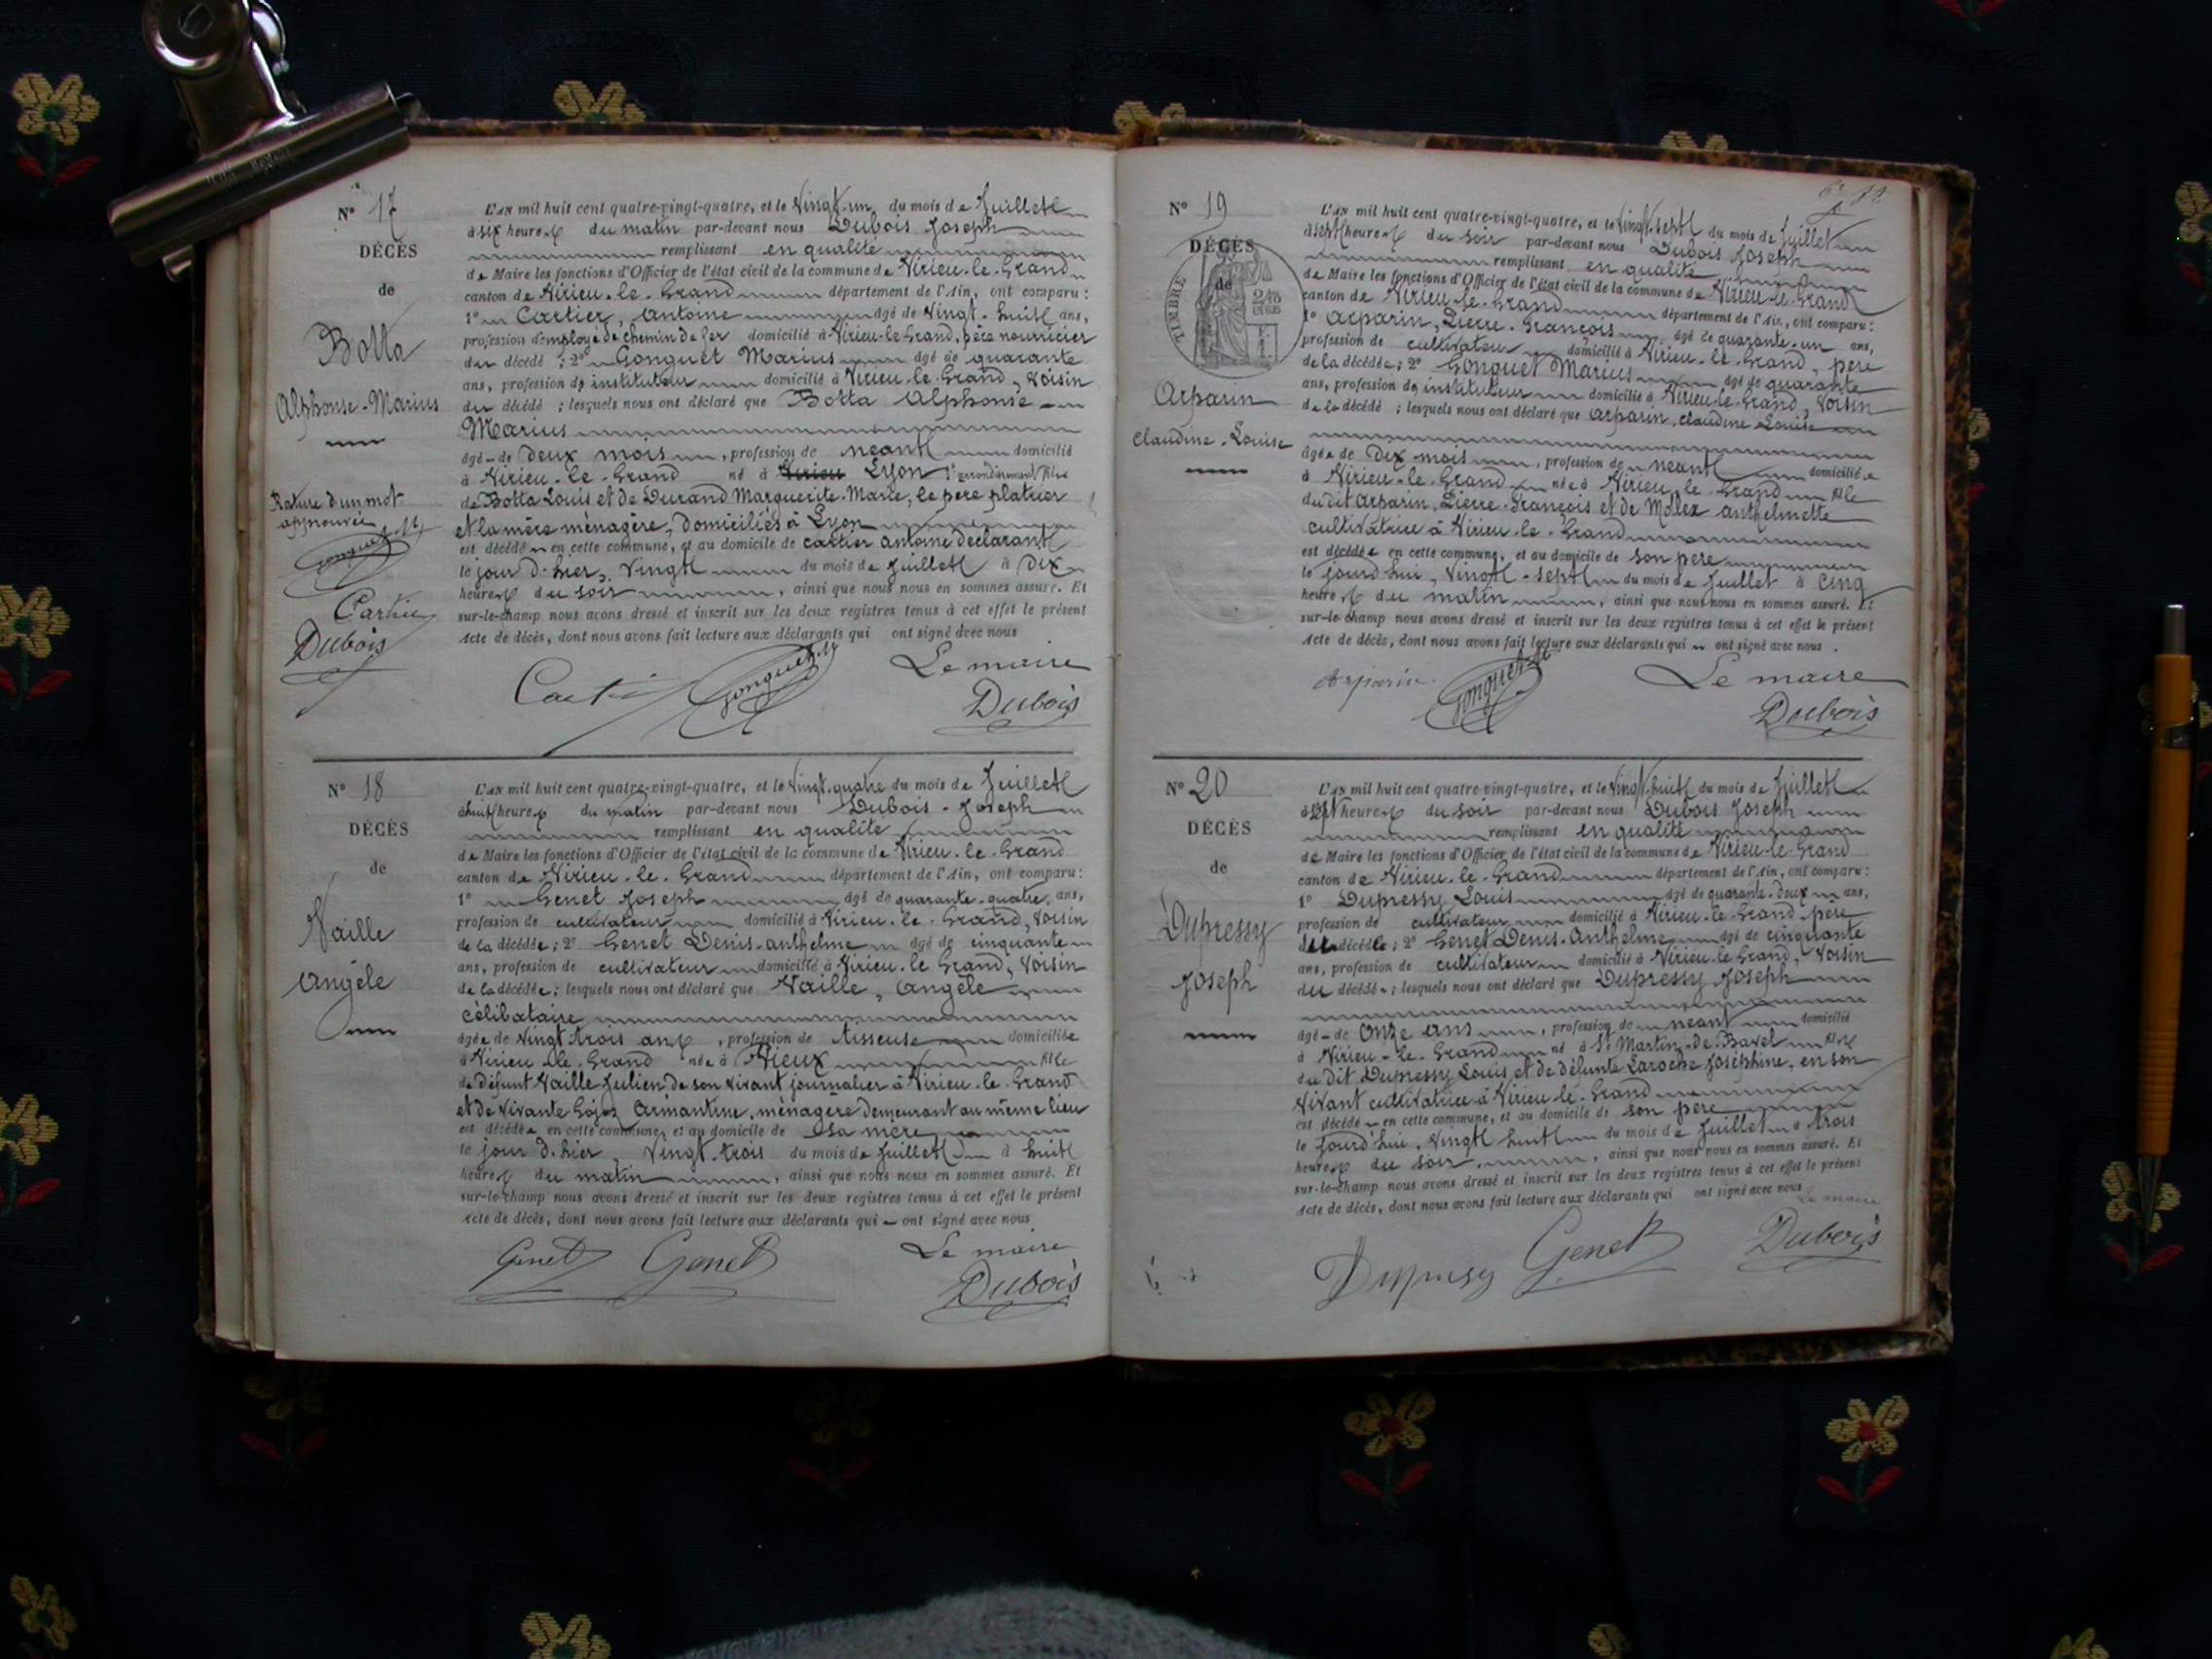 N° 17
DÉCÈS
de
Botta
Alphonse-Marius
Rature d'un mot
approuvée
Gonguet M
Cartier
Dubois
L'AN mil huit cent quatre-vingt-quatre, et le Vingt-un du mois de Juillet
à six heures du matin par-devant nous Dubois Joseph
remplissant en qualité
de Maire les fonctions d'Officier de l'état civil de la commune de Virieu-le-Grand
canton de Virieu-le-Grand département de l'Ain, ont comparu :
1° Cartier, Antoine âgé de Vingt-huit ans,
profession d'employé de chemin de fer domicilié à Virieu-le-Grand, père nourricier
du décédé ; 2° Gonguet Marius âgé de quarante
ans, profession de instituteur domicilié à Virieu-le-Grand, Voisin
du décédé ; lesquels nous ont déclaré que Botta Alphonse
Marius
âgé de deux mois, profession de neant domicilié
à Virieu-le-Grand né à Virieu Lyon 1er arrondissement fils
de Botta Louis et de Durand Marguerite-Marie, le père platrier
et la mère ménagère, domiciliés à Lyon
est décédé en cette commune, et au domicile de Cartier Antoine déclarant
le jour d'hier, Vingt du mois de Juillet à Dix
heures du soir, ainsi que nous nous en sommes assuré. Et
sur-le-champ nous avons dressé et inscrit sur les deux registres tenus à cet effet le présent
Acte de décès, dont nous avons fait lecture aux déclarants qui ont signé avec nous
Cartier Gonguet M Le maire
Dubois
N° 18
DÉCÈS
de
Vaille
Angèle
L'AN mil huit cent quatre-vingt-quatre, et le Vingt-quatre du mois de Juillet
à huit heures du matin par-devant nous Dubois-Joseph
remplissant en qualité
de Maire les fonctions d'Officier de l'état civil de la commune de Virieu-le-Grand
canton de Virieu-le-Grand département de l'Ain, ont comparu :
1° Genet Joseph âgé de quarante-quatre ans,
profession de cultivateur domicilié à Virieu-le-Grand, Voisin
de la décédée ; 2° Genet Denis-Anthelme âgé de cinquante
ans, profession de cultivateur domicilié à Virieu-le Grand, Voisin
de la décédée ; lesquels nous ont déclaré que Vaille, Angèle
célibataire
âgée de Vingt trois ans, profession de tisseuse domiciliée
à Virieu-le-Grand née à Vieux fille
de défunt Vaille Julien de son vivant journalier à Virieu-le-Grand
et de vivante Gojoz Armantine, ménagère demeurant au même lieu
est décédée en cette commune, et au domicile de sa mère
le jour d'hier, Vingt-trois du mois de Juillet à huit
heures du matin, ainsi que nous nous en sommes assuré. Et
sur-le-champ nous avons dressé et inscrit sur les deux registres tenus à cet effet le présent
Acte de décès, dont nous avons fait lecture aux déclarants qui ont signé avec nous
Genet Genet Le maire
Dubois
N° 19
DÉCÈS
de
TIMBRE
Arparin
Claudine-Louise
L'AN mil huit cent quatre-vingt-quatre, et le Vingt-sept du mois de Juillet
à sept heures du soir par-devant nous Dubois Joseph
remplissant en qualité
de Maire les fonctions d'Officier de l'état civil de la commune de Virieu-le-Grand
canton de Virieu-le-Grand département de l'Ain, ont comparu :
1° Arparin, Pierre-François âgé de quarante-un ans,
profession de cultivateur domicilié à Virieu-le-Grand, père
de la décédée ; 2° Gonguet Marius âgé de quarante
ans, profession de instituteur domicilié à Virieu-le-Grand, Voisin
de la décédé ; lesquels nous ont déclaré que Arparin, Claudine Louise
âgée de Dix mois, profession de neant domiciliée
à Virieu-le-Grand née à Virieu-le-Grand fille
du dit Arparin, Pierre-François et de Mollex Anthelmette
cultivatrice à Virieu-le-Grand
est décédée en cette commune, et au domicile de son père
le jourd'hui, Vingt-sept du mois de Juillet à cinq
heures du matin, ainsi que nous nous en sommes assuré. Et
sur-le-champ nous avons dressé et inscrit sur les deux registres tenus à cet effet le présent
Acte de décès, dont nous avons fait lecture aux déclarants qui ont signé avec nous.
Arparin Gonguet M Le maire
Dubois
N° 20
DÉCÈS
de
Dupressy
Joseph
L'AN mil huit cent quatre-vingt-quatre, et le Vingt-huit du mois de Juillet
à sept heures du soir par-devant nous Dubois Joseph
remplissant en qualité
de Maire les fonctions d'Officier de l'état civil de la commune de Virieu-le-Grand
canton de Virieu-le-Grand département de l'Ain, ont comparu :
1° Dupressy Louis âgé de quarante-deux ans,
profession de cultivateur domicilié à Virieu-le-Grand père
du décédé ; 2° Genet Denis-Anthelme âgé de cinquante
ans, profession de cultivateur domicilié à Virieu-le-Grand, Voisin
du décédé ; lesquels nous ont déclaré que Dupressy Joseph
âgé de Onze ans, profession de neant domicilié
à Virieu-le-Grand né à St Martin-de-Bavel fils
du dit Dupressy Louis et de défunte Laroche Joséphine, en son
vivant cultivatrice à Virieu-le-Grand
est décédé en cette commune, et au domicile de son père
le jourd'hui, Vingt huit du mois de Juillet à trois
heures du soir, ainsi que nous nous en sommes assuré. Et
sur-le-champ nous avons dressé et inscrit sur les deux registres tenus à cet effet le présent
Acte de décès, dont nous avons fait lecture aux déclarants qui ont signé avec nous
Le maire
Dupressy Genet Dubois